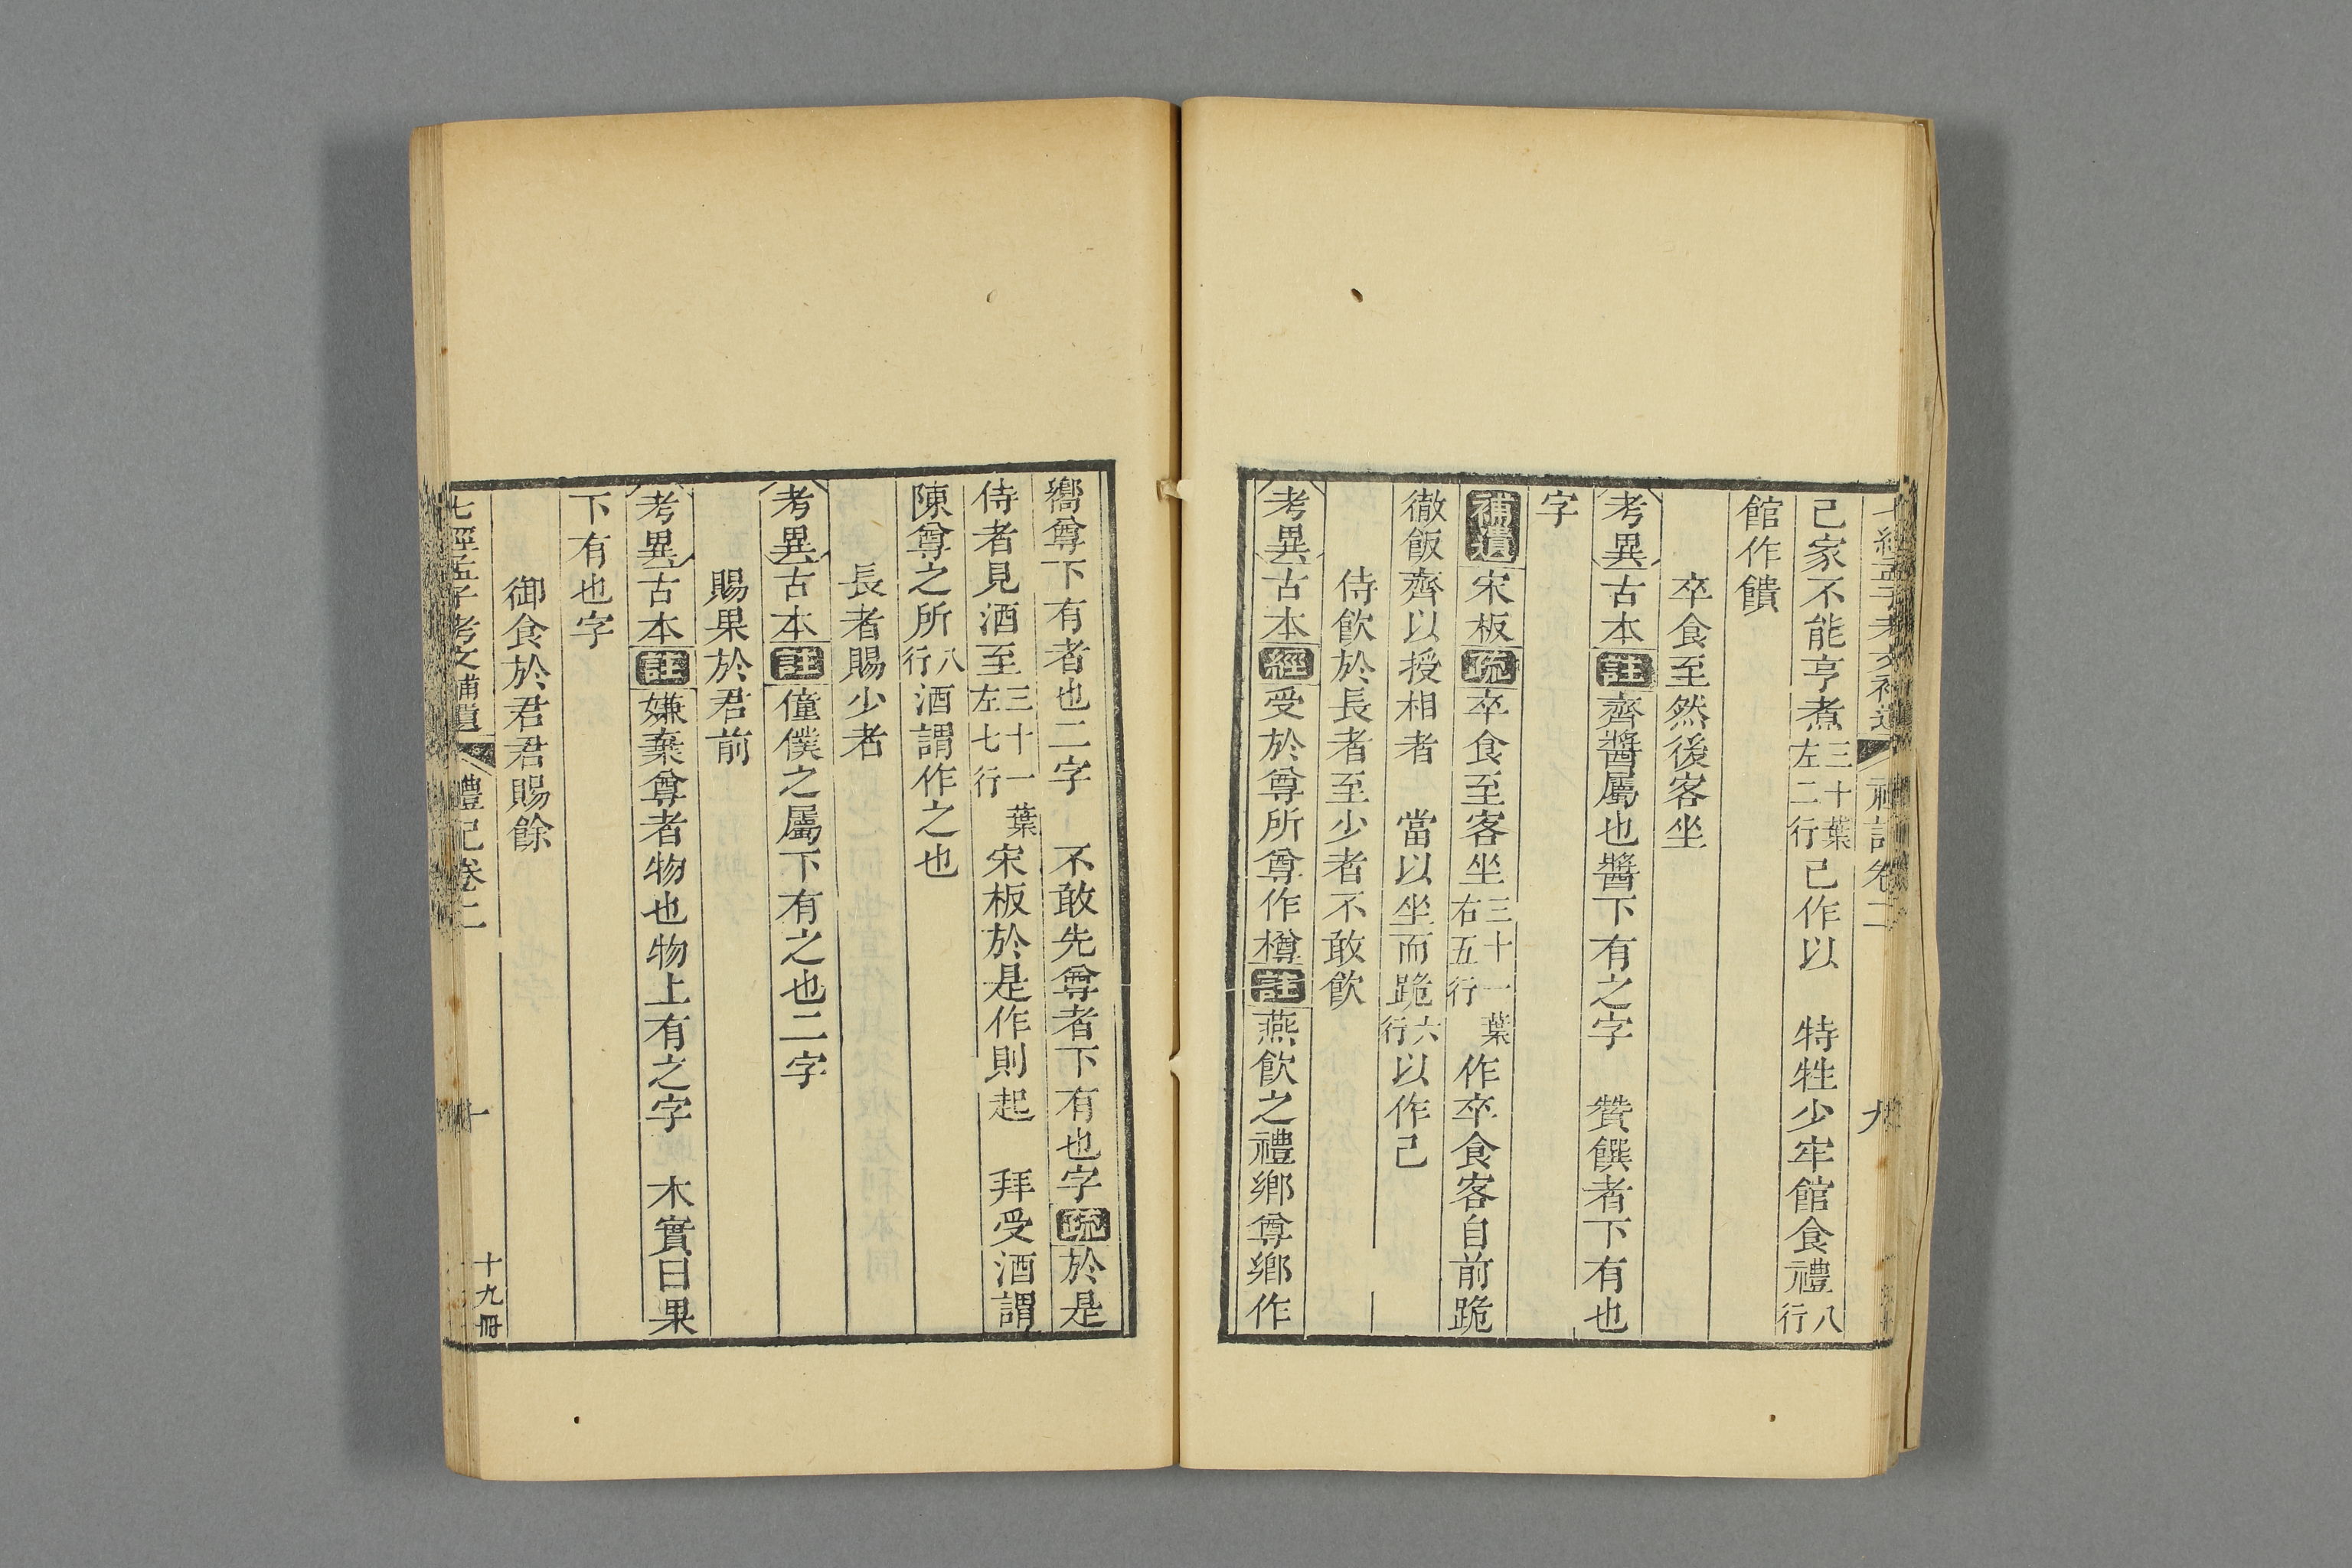 七經孟子考文補遺 禮記卷二 九
己家不能亨煮三十葉左二行己作以 特牲少牢館食禮八行
館作饋
卒食至然後客坐
考異古本註齊醬屬也醬下有之字 贊饌者下有也
字
補遺宋板疏卒食至客坐三十一葉右五行作卒食客自前跪
徹飯齊以授相者 當以坐而跪六行以作己
侍飲於長者至少者不敢飲
考異古本經受於尊所尊作樽註燕飲之禮鄉尊鄉作
嚮尊下有者也二字 不敢先尊者下有也字疏於是
侍者見酒至三十一葉左七行宋板於是作則起 拜受酒謂
陳尊之所八行酒謂作之也
長者賜少者
考異古本註僮僕之屬下有之也二字
賜果於君前
考異古本註嫌棄尊者物也物上有之字 木實曰果
下有也字
御食於君君賜餘
七經孟子考文補遺 禮記卷二 十 十九冊